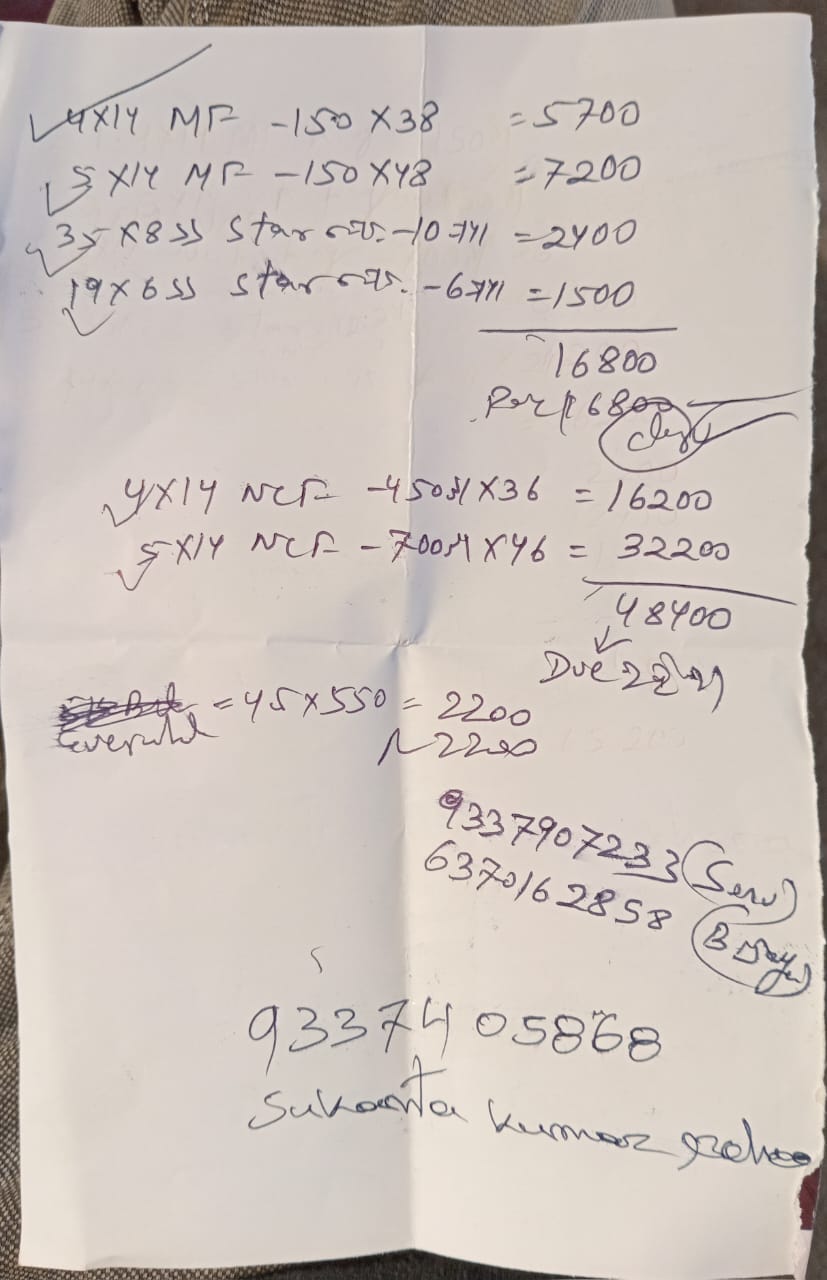 4X14 MF -150 X38 = 5700
5 X14 MF -150 X48 = 7200
35 X8 SS Star -10 = 2400
19 X 6 SS Star -6 = 1500
16800
16800
4X14 NCF -450 X36 = 16200
5X14 NCF - 700 X46 = 32200
48400
Due
= 45 X 550 = 2200
2200
9337907233
6370162858
9337405868
Sukanta Kumar